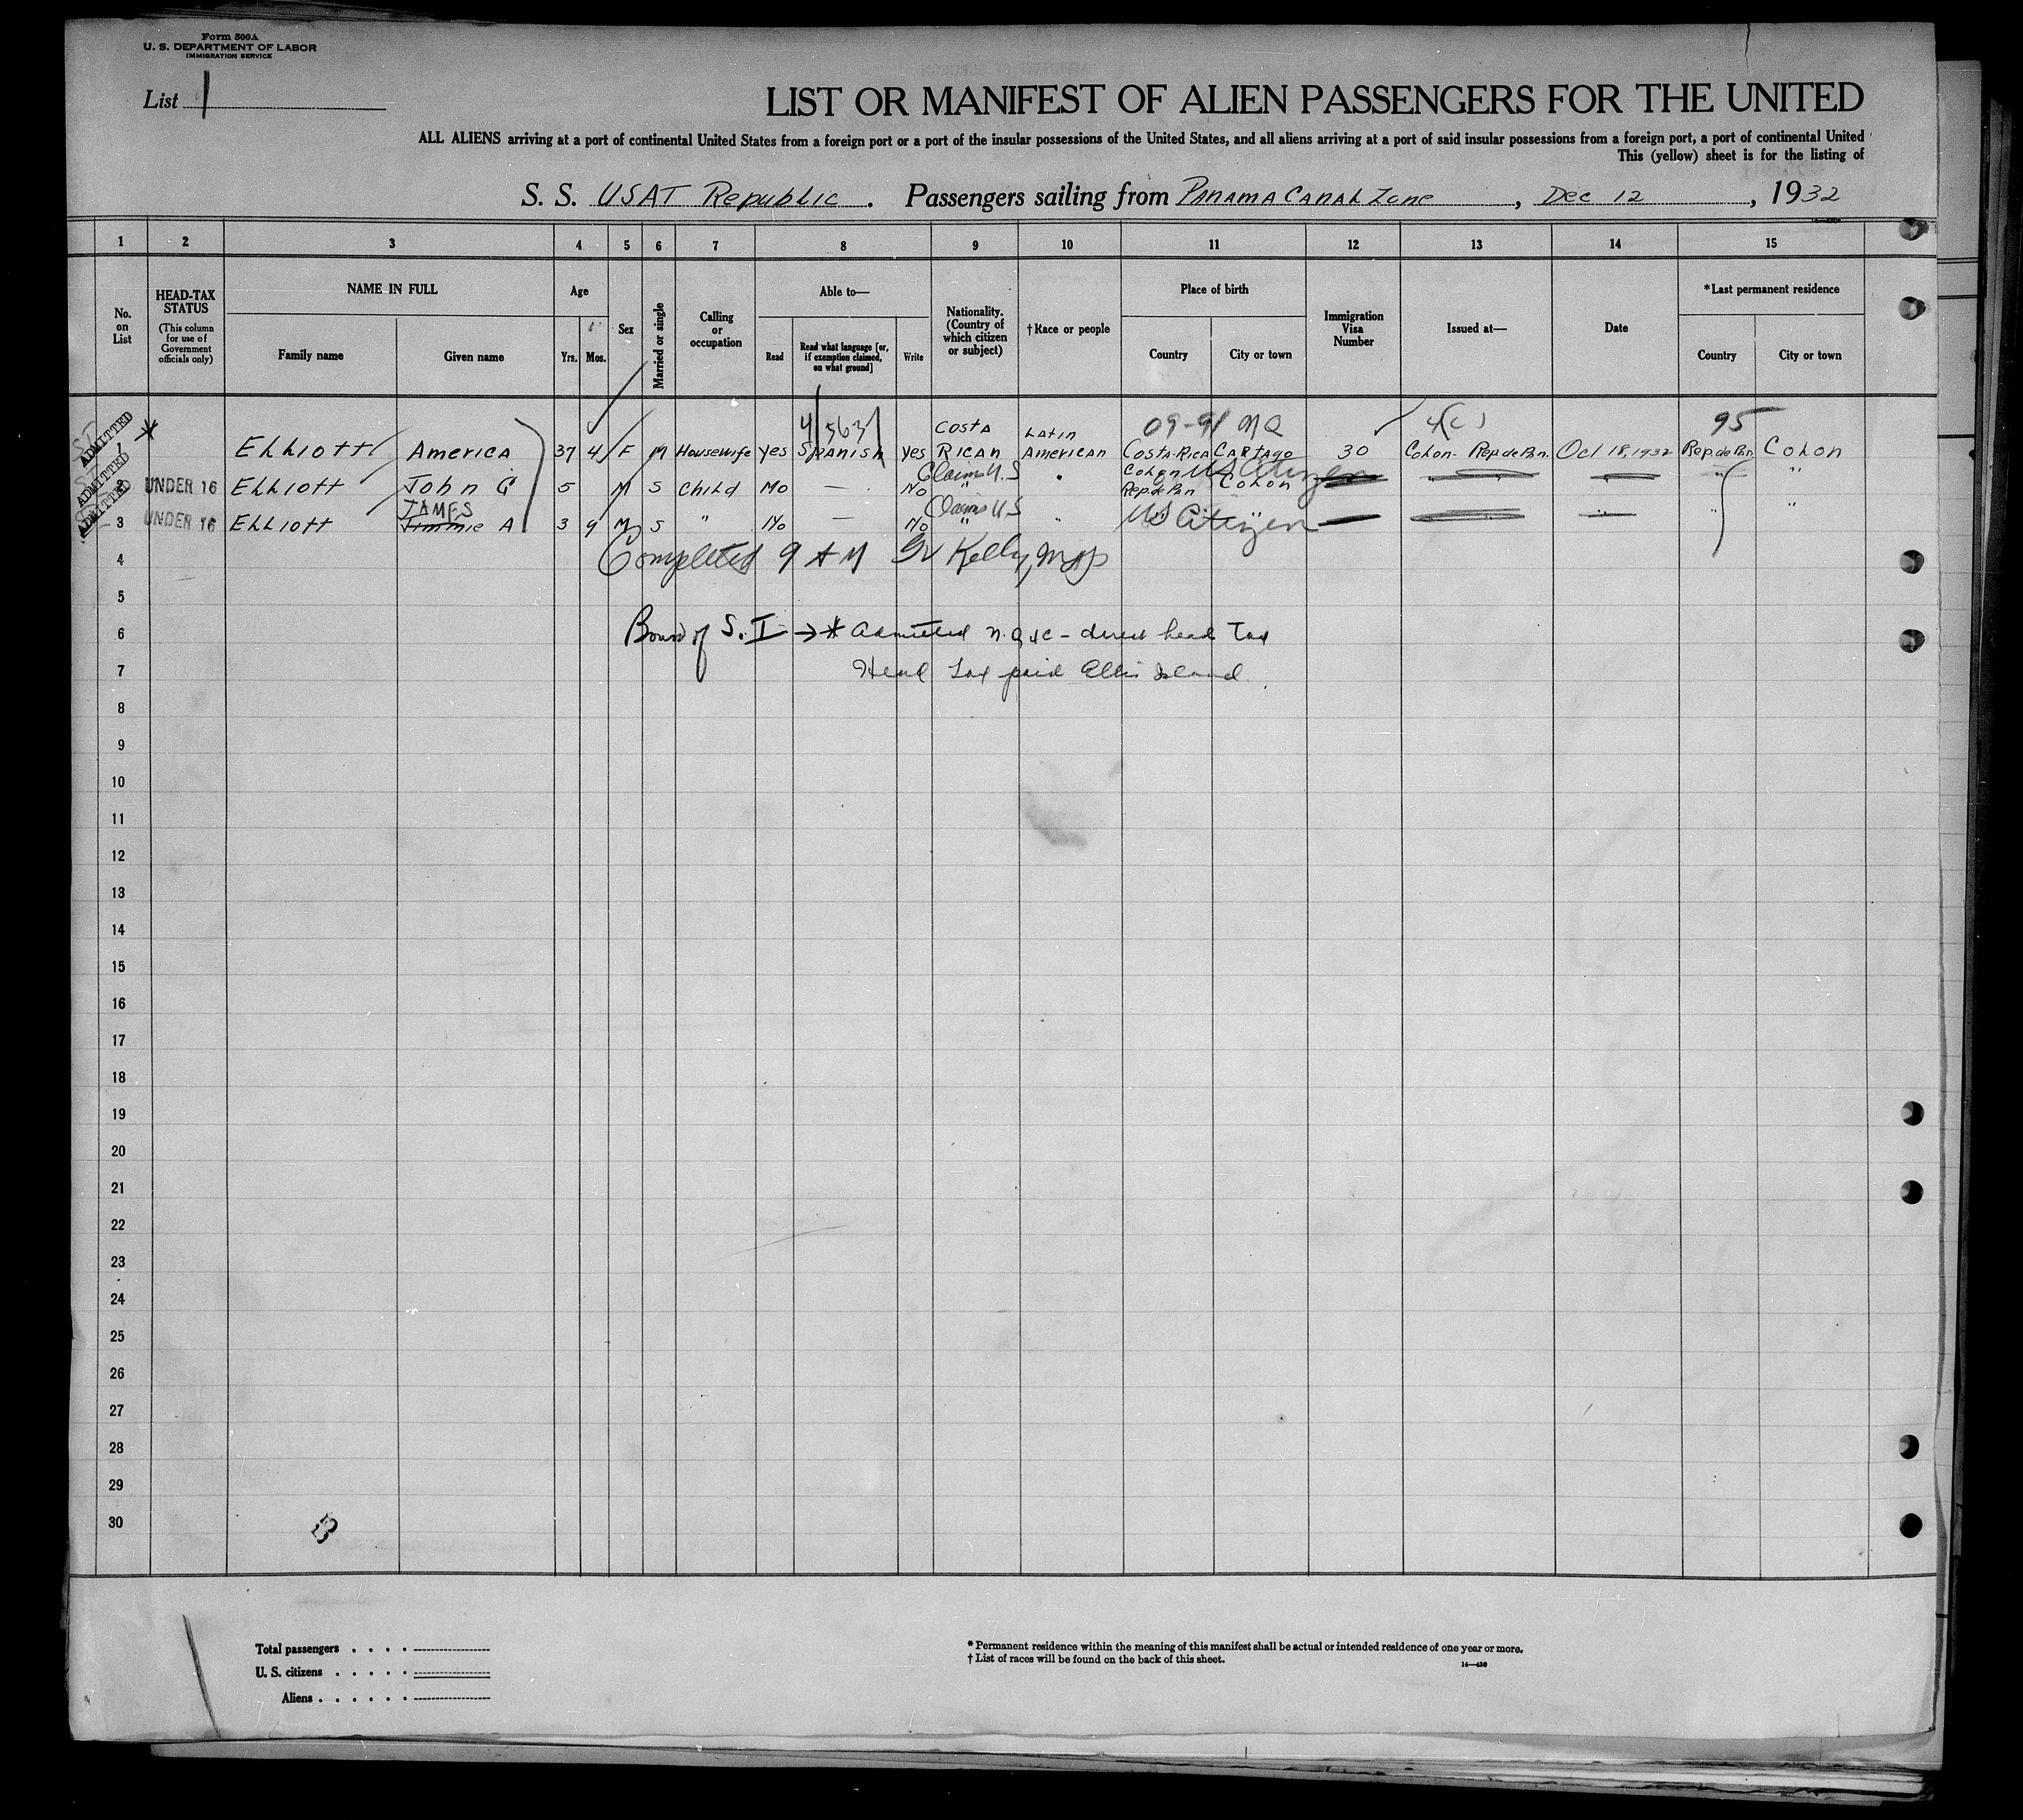 Form 500A
U. S. DEPARTMENT OF LABOR
IMMIGRATION SERVICE
List 1
LIST OR MANIFEST OF ALIEN PASSENGERS FOR THE UNITED
ALL ALIENS arriving at a port of continental United States from a foreign port or a port of the insular possessions of the United States, and all aliens arriving at a port of said insular possessions from a foreign port, a port of continental United
This (yellow) sheet is for the listing of
S. S. USAT Republic . Passengers sailing from Panama Canal Zone , Dec 12 , 1932
1 2 3 4 5 6 7 8 9 10 11 12 13 14 15
No. on List
HEAD-TAX STATUS
(This column for use of Government officials only)
NAME IN FULL
Family name
Given name
Age
Yrs.
Mos.
Sex
Married or single
Calling or occupation
Able to—
Read
Read what language [or, if exemption claimed, on what ground]
Write
Nationality. (Country of which citizen or subject)
†Race or people
Place of birth
Country
City or town
Immigration Visa Number
Issued at—
Date
*Last permanent residence
Country
City or town
ADMITTED 1 * Elliott America 37 4 F M Housewife yes Spanish yes Costa Rican Latin American Costa-Rica Cartago 30 Colon- Rep de Pan. Oct 18, 1932 Rep. de Pan Colon
4/563 09-91 95
ADMITTED 2 UNDER 16 Elliott John G 5 M S Child No — No " " Colon Rep de Pan Colon " "
Claims U.S US Citizen
ADMITTED 3 UNDER 16 Elliott Jimmie A 3 9 M S " No — No " " " "
JAMES Claims U S US Citizen
4 Completed 9 AM Kelly
5
6 Board of S. I → * Admitted head Tax
7 Head Tax paid Ellis Island
8
9
10
11
12
13
14
15
16
17
18
19
20
21
22
23
24
25
26
27
28
29
30
B
Total passengers . . . .
U. S. citizens . . . . .
Aliens . . . . . .
* Permanent residence within the meaning of this manifest shall be actual or intended residence of one year or more.
† List of races will be found on the back of this sheet.
14—430